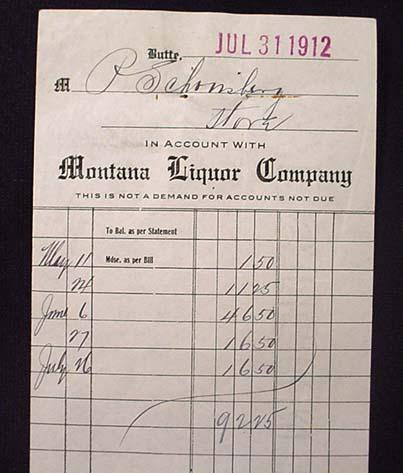 Butte, JUL 31 1912
M P
IN ACCOUNT WITH
Montana Liquor Company
THIS IS NOT A DEMAND FOR ACCOUNTS NOT DUE
To Bal. as per Statement
May 11 Mdse. as per Bill 1 50
24 11 25
June 6 46 50
27 16 50
July 26 16 50
92 25